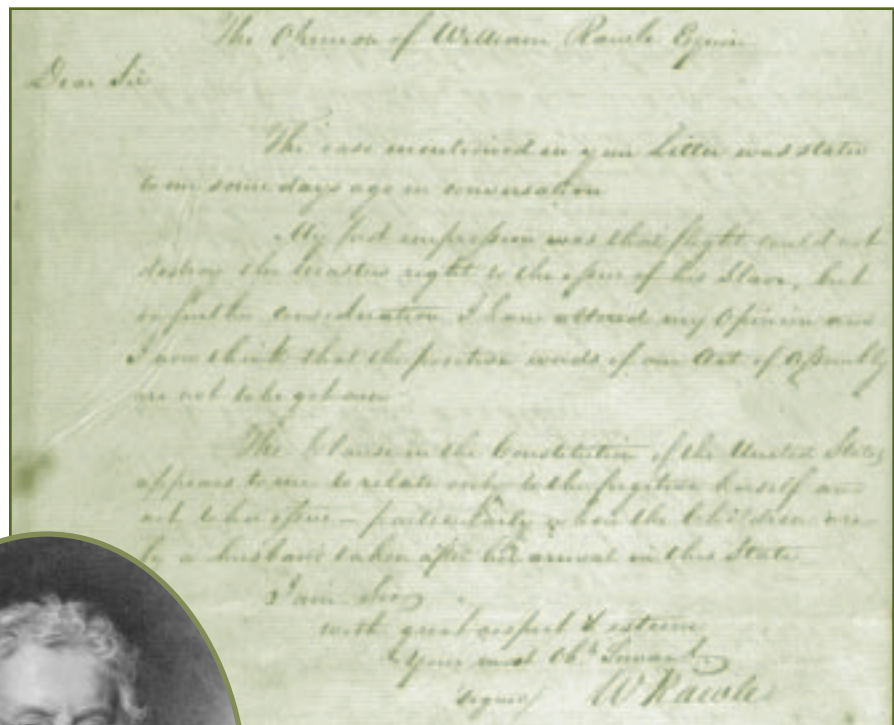 The Opinion of William Rawle Esquire
Dear Sir
The case mentioned in your Letter was stated
to me some days ago in conversation
My first impression was that flight could not
destroy the Masters right to the issue of his Slave, but
on further consideration I have altered my Opinion and
I now think that the positive words of our Act of Assembly
are not to be got over
The Clause in the Constitution of the United States
appears to me to relate only to the fugitive herself and
not to her issue – particularly when the Children are
by a husband taken after her arrival in this State
I am Sir
with great respect & esteem
Your most Obt Servant
signed/ W Rawle